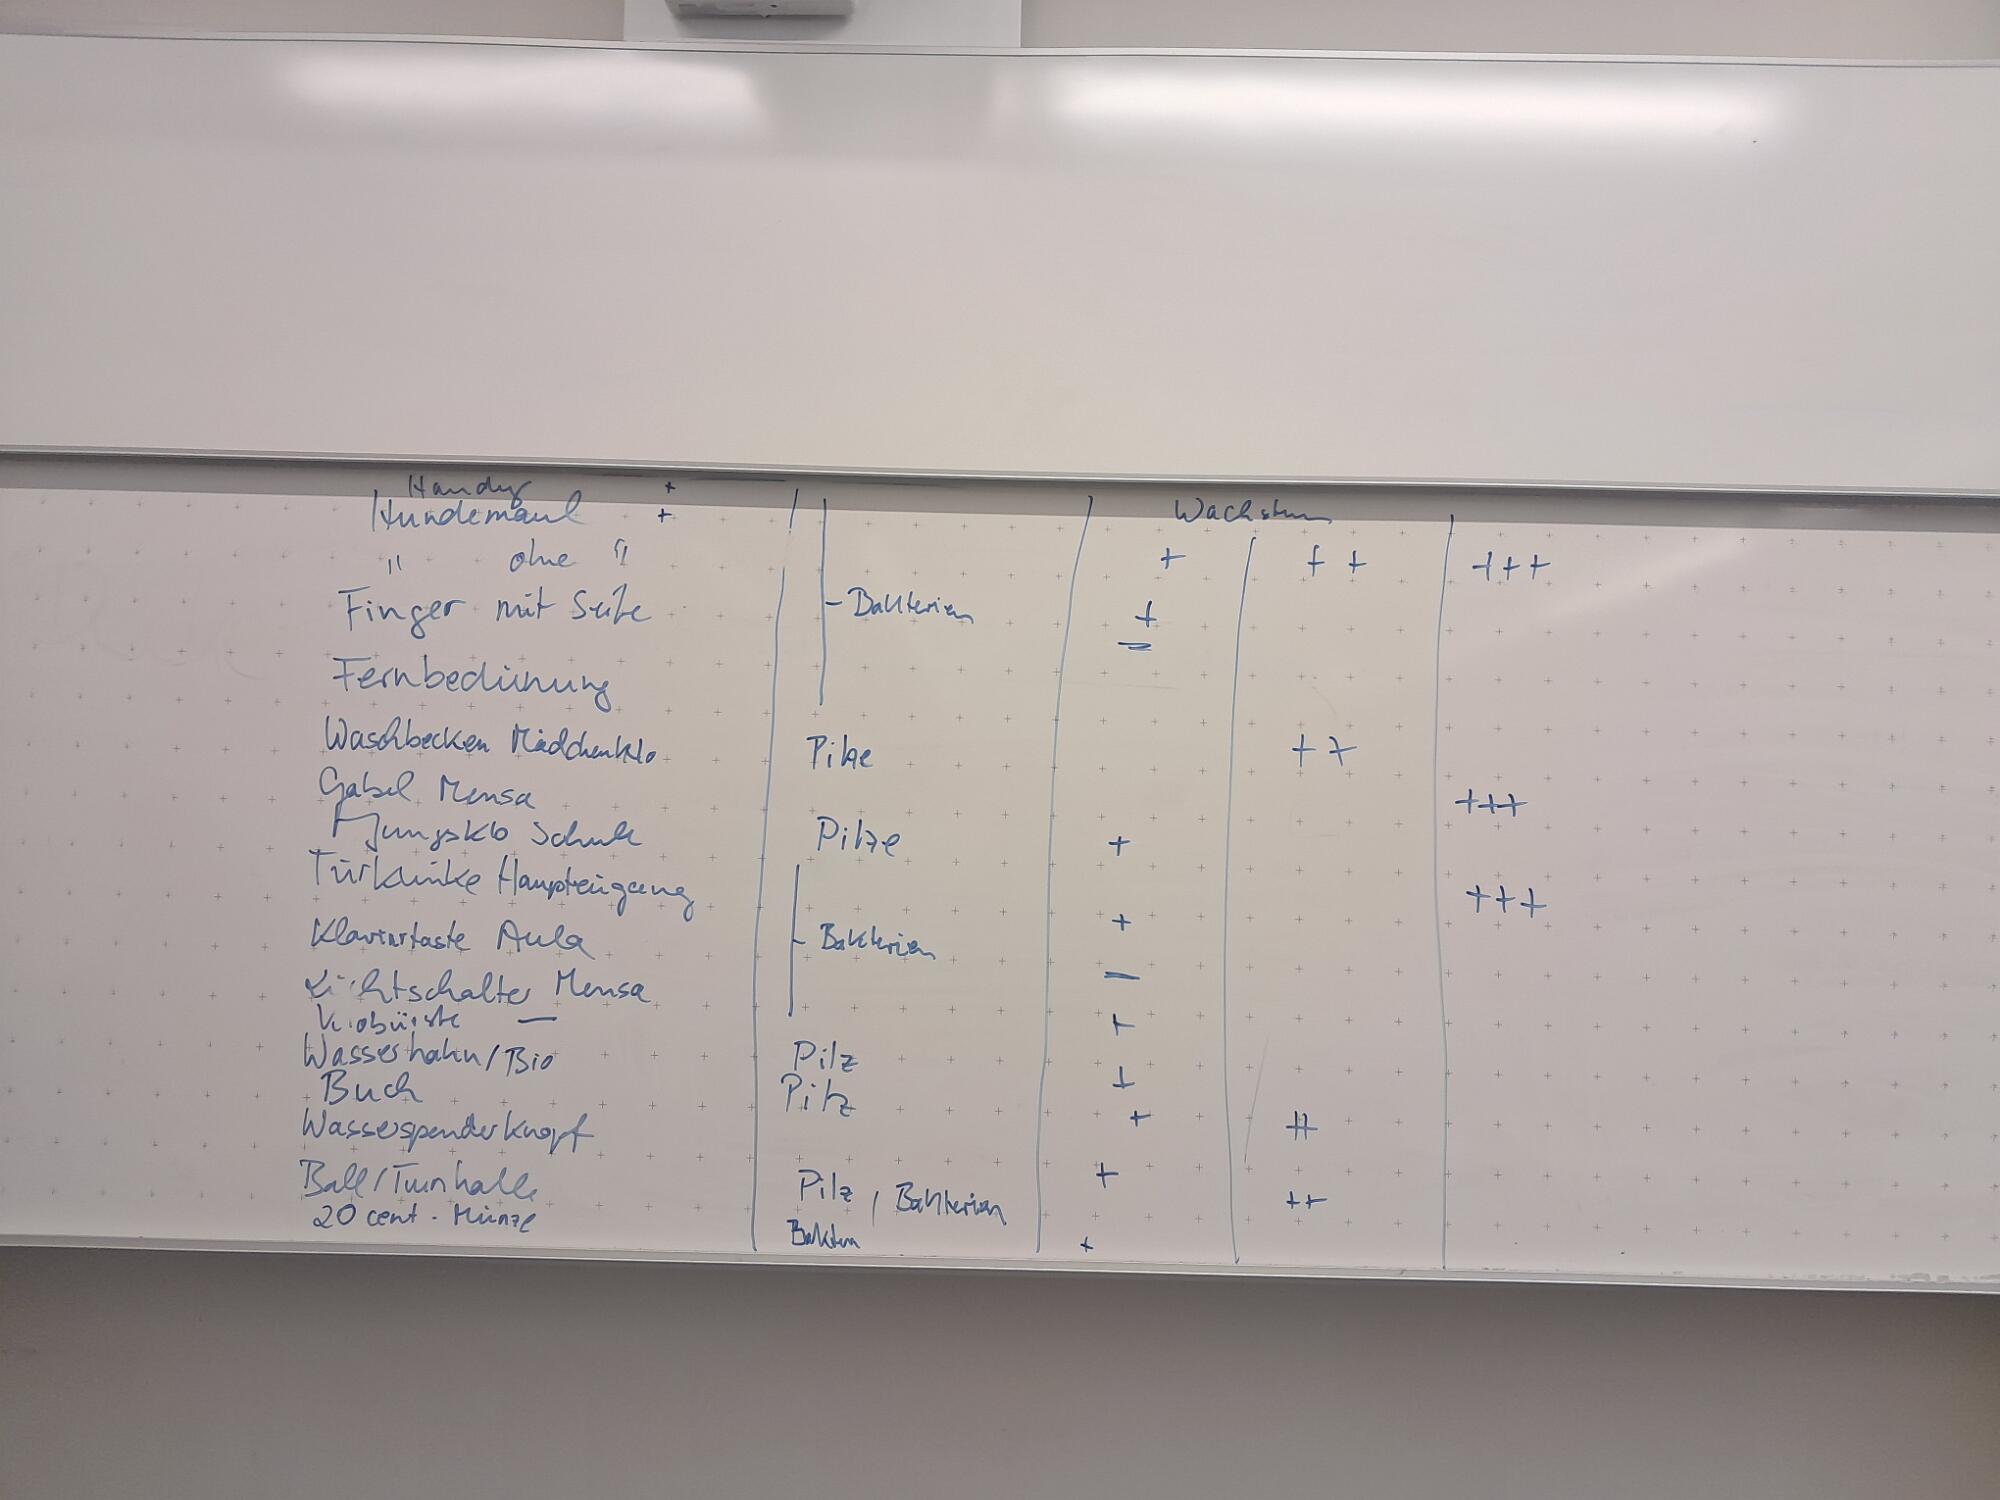 Handy +
Hundemaul + Wachstum
" ohne " + ++ +++
Finger mit Seife Bakterien +
=
Fernbedinung
Waschbecken Mädchenklo Pilze ++
Gabel Mensa +++
Jungsklo Schule Pilze +
Türklinke Haupteigang +++
Klaviertaste Aula Bakterien +
Lichtschalter Mensa —
Klobürste — +
Wasserhahn/Bio Pilz
Buch Pilz +
Wasserspenderknopf + ++
Ball/Turnhalle Pilz, Bakterien + ++
20 cent - Münze Bakterien +